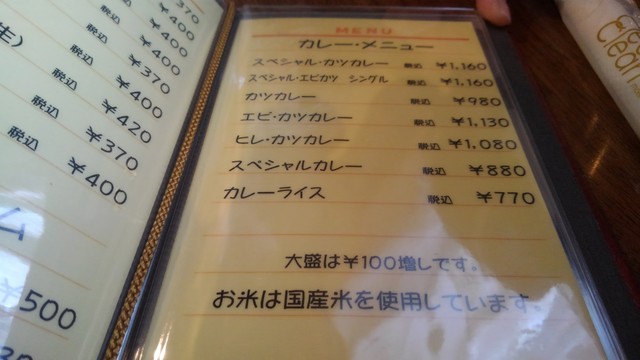 370
400
税込 ¥400
税込 ¥370
税込 ¥400
税込 ¥420
税込 ¥370
税込 ¥400
¥500
MENU
カレー・メニュー
スペシャル・カツカレー 税込 ¥1,160
スペシャル・エビカツ シングル 税込 ¥1,160
カツカレー 税込 ¥980
エビ・カツカレー 税込 ¥1,130
ヒレ・カツカレー 税込 ¥1,080
スペシャルカレー 税込 ¥880
カレーライス 税込 ¥770
大盛は¥100増しです。
お米は国産米を使用しています。
Clean